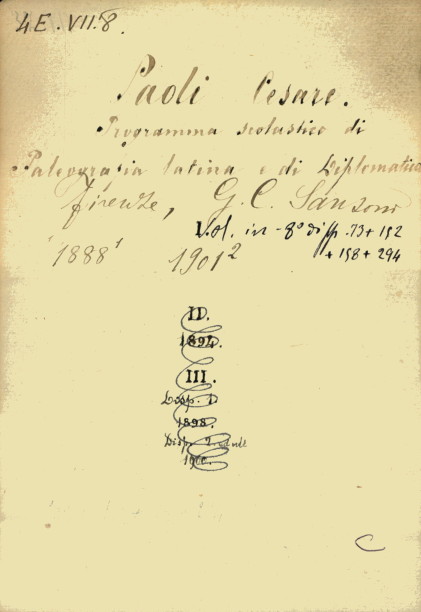 4E.VII.8.
Paoli Cesare.
Programma scolastico di
Paleografia latina e di Diplomatica
Firenze, G. C. Sansoni
Vol. in -8° disp. 73+152
+158+294
1888¹ 1901²
II.
1894.
III.
Disp. 1.
1898.
Disp. 2.
1900.
C